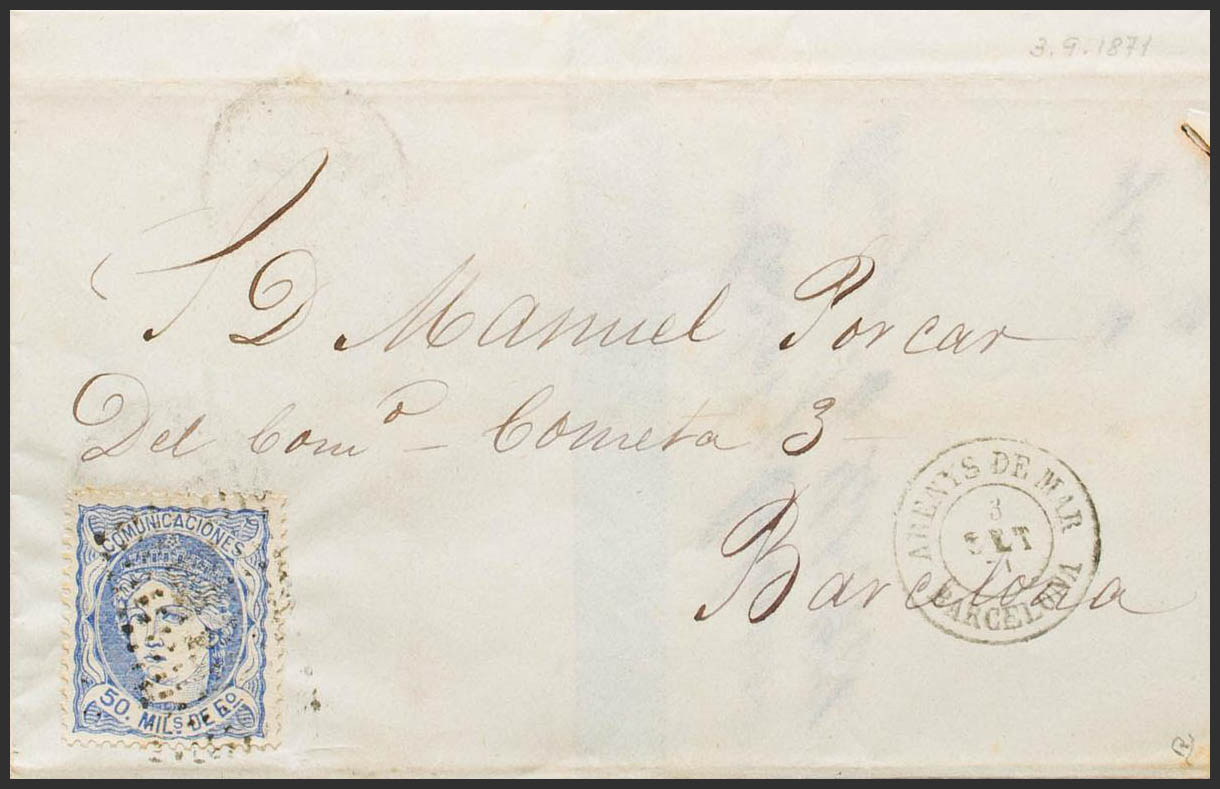 3.9.1871
S D Manuel Porcar
Del Com^o – Cometa 3 –
Barcelona
ARENYS DE MAR
3
SET
71
BARCELONA
COMUNICACIONES
50. MILS. DE Eo.
R